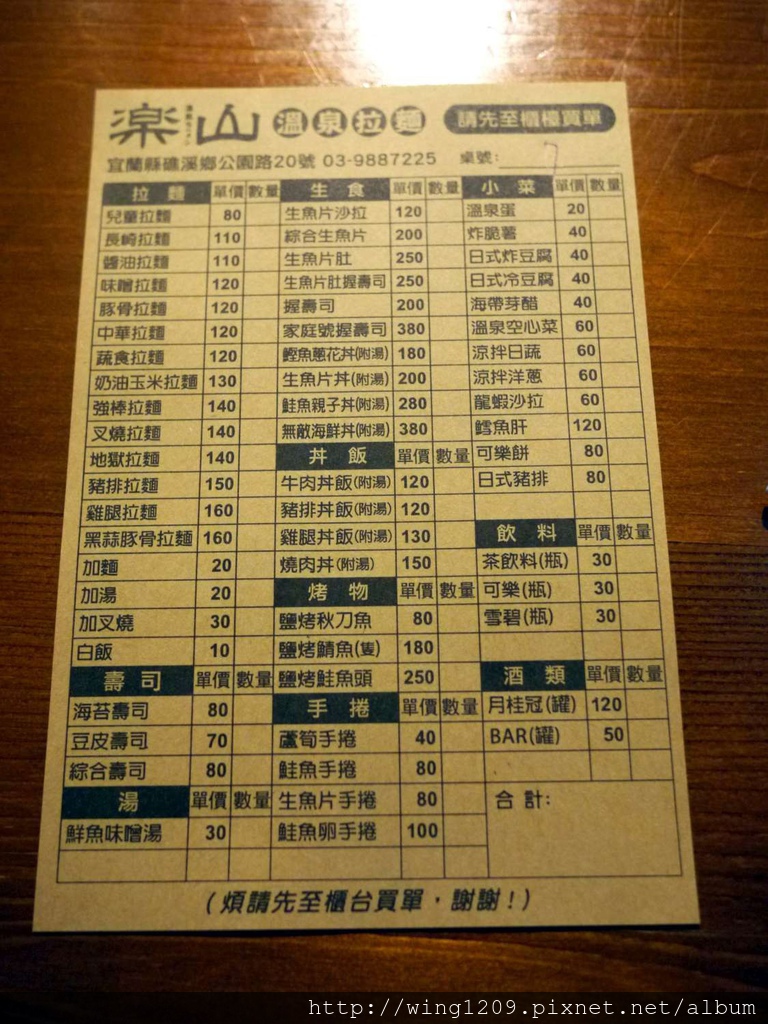 楽山 温泉ラーメン 溫泉拉麵 請先至櫃檯買單
宜蘭縣礁溪鄉公園路20號 03-9887225 桌號:
拉麵 單價 數量
兒童拉麵 80
長崎拉麵 110
醬油拉麵 110
味噌拉麵 120
豚骨拉麵 120
中華拉麵 120
蔬食拉麵 120
奶油玉米拉麵 130
強棒拉麵 140
叉燒拉麵 140
地獄拉麵 140
豬排拉麵 150
雞腿拉麵 160
黑蒜豚骨拉麵 160
加麵 20
加湯 20
加叉燒 30
白飯 10
壽司 單價 數量
海苔壽司 80
豆皮壽司 70
綜合壽司 80
湯 單價 數量
鮮魚味噌湯 30
生食 單價 數量
生魚片沙拉 120
綜合生魚片 200
生魚片肚 250
生魚片肚握壽司 250
握壽司 200
家庭號握壽司 380
鰹魚蔥花丼(附湯) 180
生魚片丼(附湯) 200
鮭魚親子丼(附湯) 280
無敵海鮮丼(附湯) 380
丼飯 單價 數量
牛肉丼飯(附湯) 120
豬排丼飯(附湯) 120
雞腿丼飯(附湯) 130
燒肉丼(附湯) 150
烤物 單價 數量
鹽烤秋刀魚 80
鹽烤鯖魚(隻) 180
鹽烤鮭魚頭 250
手捲 單價 數量
蘆筍手捲 40
鮭魚手捲 80
生魚片手捲 80
鮭魚卵手捲 100
小菜 單價 數量
溫泉蛋 20
炸脆薯 40
日式炸豆腐 40
日式冷豆腐 40
海帶芽醋 40
溫泉空心菜 60
涼拌日蔬 60
涼拌洋蔥 60
龍蝦沙拉 60
鱈魚肝 120
可樂餅 80
日式豬排 80
飲料 單價 數量
茶飲料(瓶) 30
可樂(瓶) 30
雪碧(瓶) 30
酒類 單價 數量
月桂冠(罐) 120
BAR(罐) 50
合計:
(煩請先至櫃台買單，謝謝!)
http://wing1209.pixnet.net/album